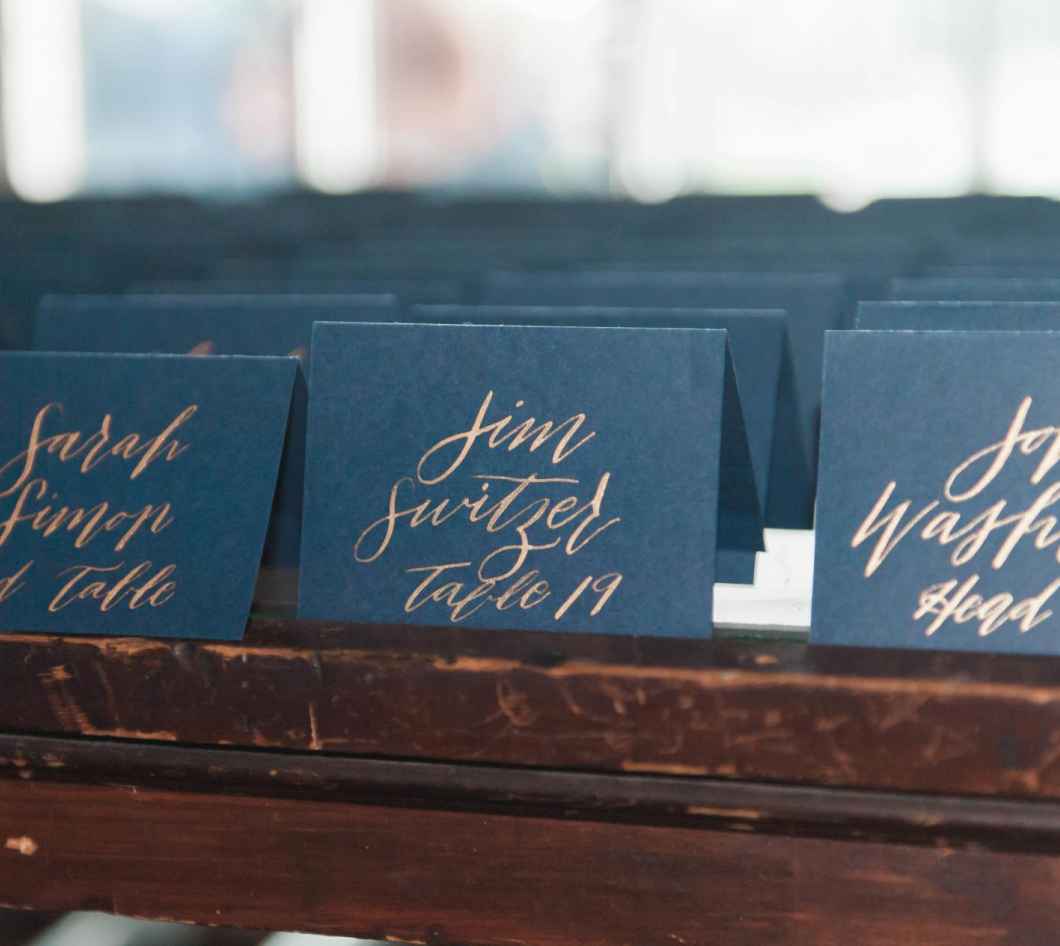 Sarah
Simon
Table
Jim
Switzer
Table 19
Head